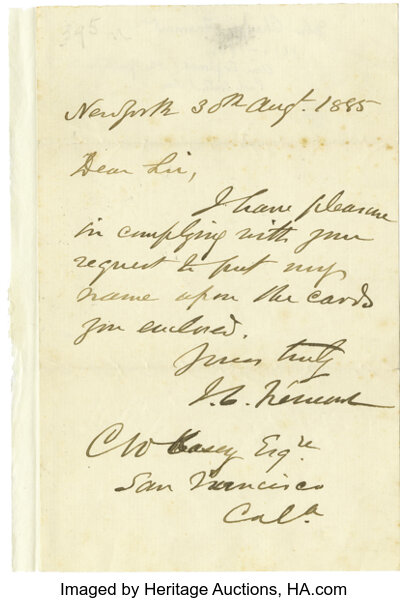 New York 30th Augt. 1885
Dear Sir,
I have pleasure
in complying with your
request to put my
name upon the cards
you enclosed.
Yours truly
J. C. Frémont
C W Casey Esqre
San Francisco
Cala
Imaged by Heritage Auctions, HA.com